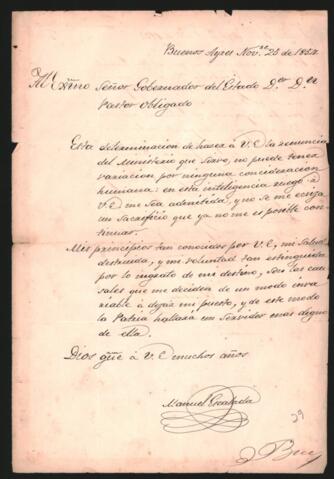 Buenos Ayres Nov.re 25 de 1854
Al Exmo Señor Gobernador del Estado D.or D.n
Pastor Obligado
Esta determinacion de hacer à V.E la renuncia
del Ministerio que sirvo, no puede tener
variacion por ninguna consideracion
humana: en esta inteligencia ruego à
V.E me sea admitida, y no se me ecsija
un sacrificio que ya no me es posible con-
tinuar.
Mis principios tan conocidos por V.E, mi salud
destruida, y mi voluntad tan estinguida
por lo ingrato de mi destino, son las cau-
sales que me deciden de un modo inva-
riable à dejar mi puesto, y de este modo
la Patria hallará un servidor mas digno
de ella.
Dios gũe à V.E muchos años
Manuel Escalada
29